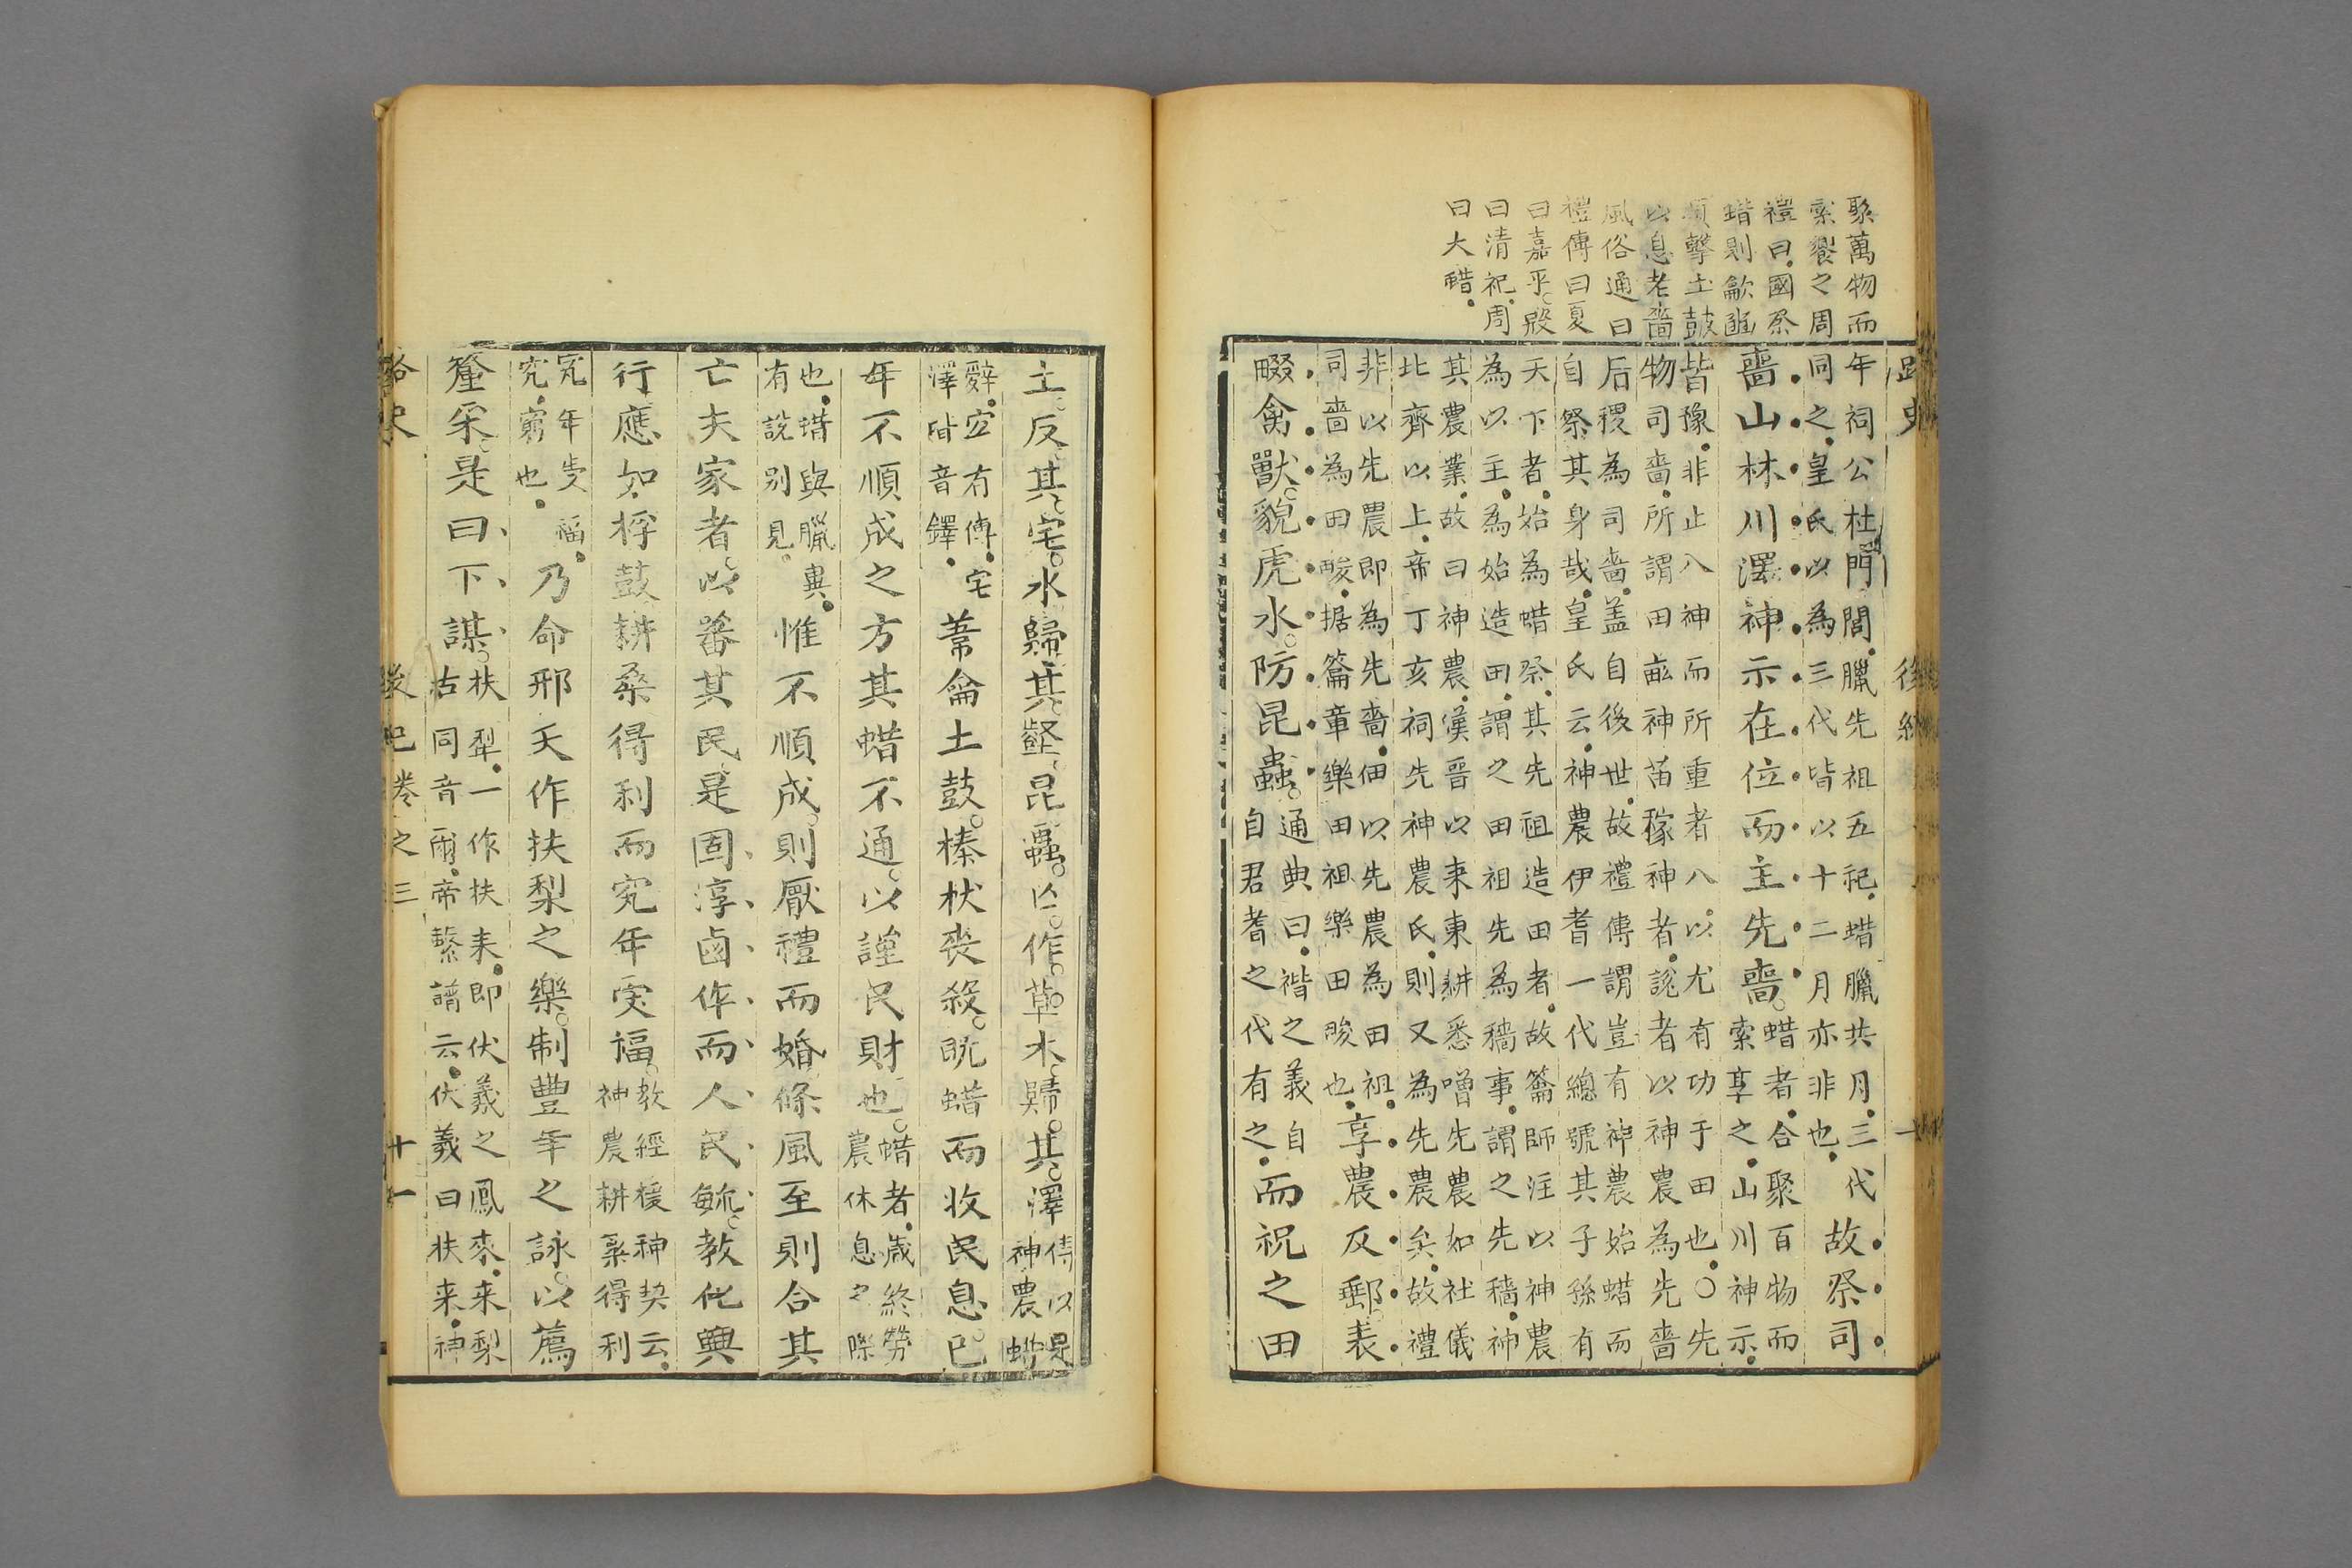 聚萬物而
索饗之周
禮曰國祭
蜡則龡豳
頌擊土鼓
以息老嗇
風俗通曰
禮傳曰夏
曰嘉平殷
曰清祀周
曰大蜡
路史 後紀
年祠公杜門閭臘先祖五祀蜡臘共月三代
同之皇氏以為三代皆以十二月亦非也
故祭司
嗇山林川澤神示在位而主先嗇
蜡者合聚百物而
索享之山川神示
皆豫非止八神而所重者八以尤有功于田也○先
物司嗇所謂田畝神苗稼神者說者以神農為先嗇
后稷為司嗇盖自後世故禮傳謂豈有神農始蜡而
自祭其身哉皇氏云神農伊耆一代總號其子孫有
天下者始為蜡祭其先祖造田者故籥師注以神農
為以主為始造田謂之田祖先為穡事謂之先穡神
其農業故曰神農漢晉以来東耕悉噌先農如社儀
北齊以上帝丁亥祠先神農氏則又為先農矣故禮
非以先農即為先嗇佃以先農為田祖
司嗇為田畯据籥章樂田祖樂田畯也
享農及郵表
畷禽獸貌虎水防昆蟲
通典曰禮之義自
自君耆之代有之
而祝之田
土反其宅水歸其壑昆蟲亾作草木歸其澤
傳以是
神農蜡
辭宅有傳宅
澤皆音鐸
葦龠土鼓榛杖丧殺既蜡而收民息已
年不順成之方其蜡不通以謹民財也
蜡者歲終勞
農休息之際
也蜡與臘異
有說别見
惟不順成則厭禮而婚條風至則合其
亡夫家者以蕃其民是固淳鹵作而人民毓教化興
行應如桴鼓耕桑得利而究年受福
教經援神契云
神農耕桑得利
究年受福
究窮也
乃命邢天作扶犂之樂制豐年之詠以薦
釐来是曰下謀
扶犂一作扶耒即伏羲之鳳来来犂
古同音爾帝繫譜云伏羲曰扶来神
路史 後紀卷之三 十一